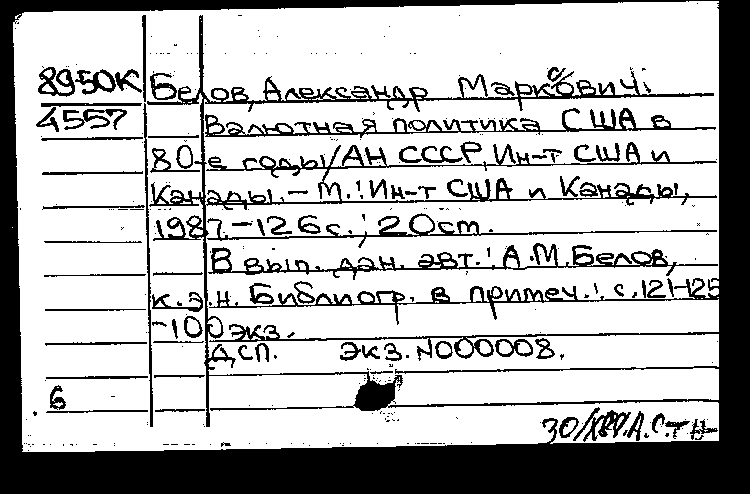 8950К Белов, Александр Маркович.
4557 Валютная политика США в
80-е годы/АН СССР, Ин-т США и
Канады. – М.: Ин-т США и Канады,
1987. – 126 с.; 20 ст.
В вып. дан. авт.: А.М.Белов,
к.э.н. Библиогр. в примеч.: с.121-125
- 100 экз.
ДСП. Экз. N000008.
6